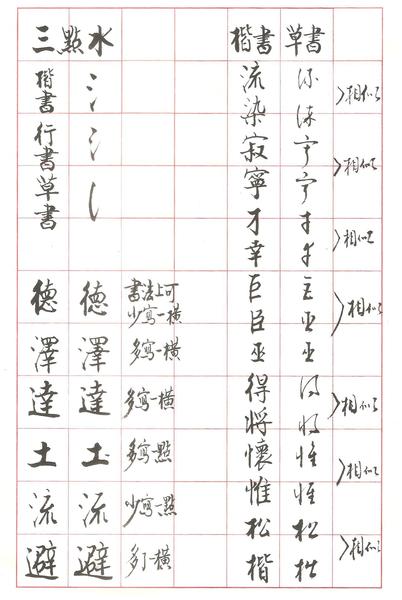 三點水
楷書
行書
草書
德 德 書法上可少寫一橫
澤 澤 多寫一橫
達 達 多寫一橫
土 土 多寫一點
流 流 少寫一點
避 避
楷書 草書
流 流
染 染
相似
寂 寂
寧 寧
相似
才 才
幸 幸
相似
巨 巨
臣 臣
巫 巫
相似
得 得
將 將
相似
懷 懷
惟 惟
相似
松 松
楷 楷
相似